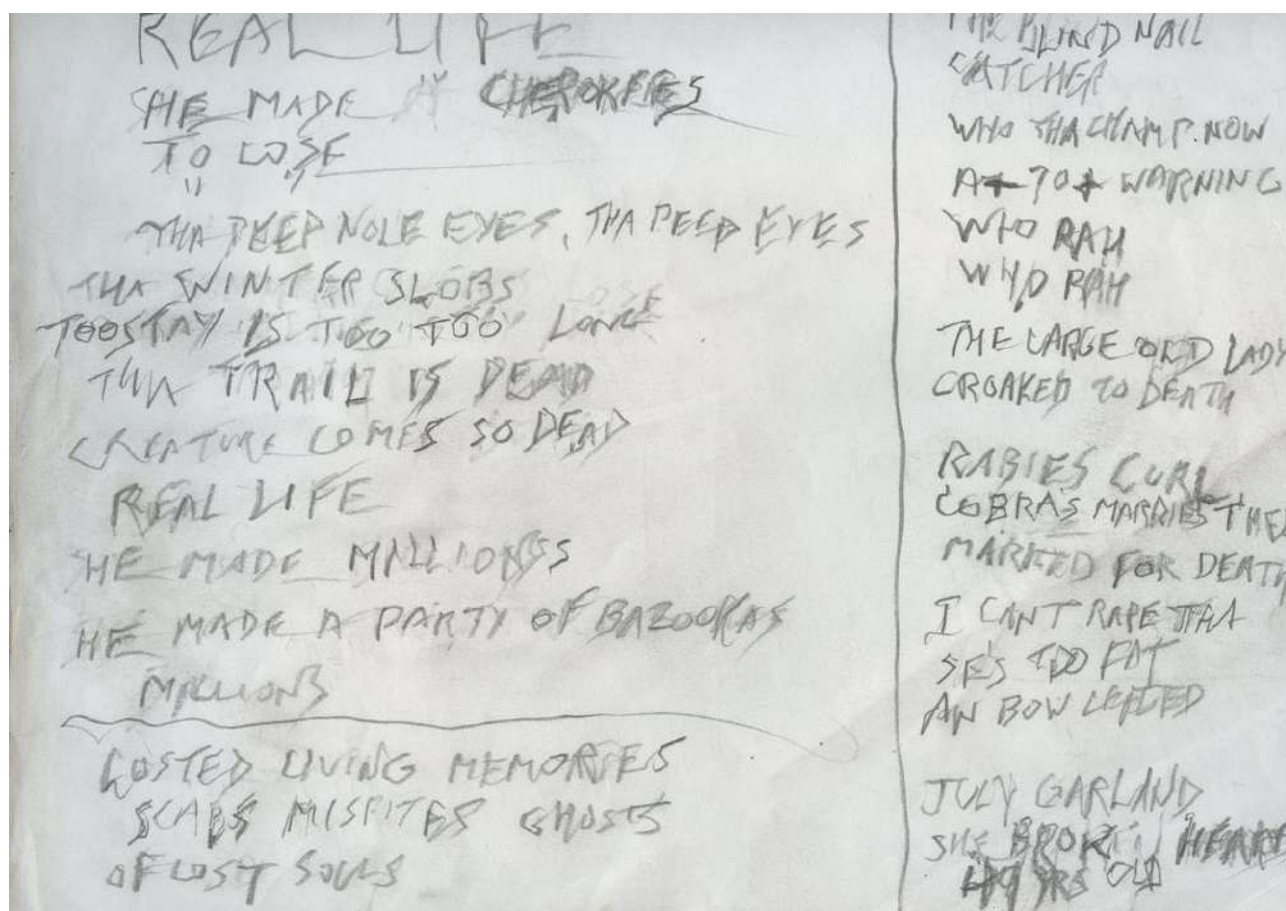 REAL LIFE
HE MADE CHEROKEES
TO LOSE
THA PEEP NOLE EYES, THA PEED EYES
THA WINTER SLOBS
TOOSTAY IS TOO TOO LONG
THA TRAIL IS DEAD
CREATURE COMES SO DEAD
REAL LIFE
HE MADE MILLIONS
HE MADE A PARTY OF BAZOOKAS
MILLIONS
LOSTED LIVING MEMORIES
SCABS MISFITES GHOSTS
OF LOST SOULS
THE BLIND NAIL
CATCHER
WHO THA CHAMP. NOW
WARNING
WHO RAH
WHO RAH
THE LARGE OLD LADY
CROAKED TO DEATH
RABIES CURL
COBRA'S MARRIES THE
MARKED FOR DEATH
I CANT RAPE THA
SE'S TOO FAT
AN BOW LEGED
JULY GARLAND
SHE BROKE HEART
YRS OLD